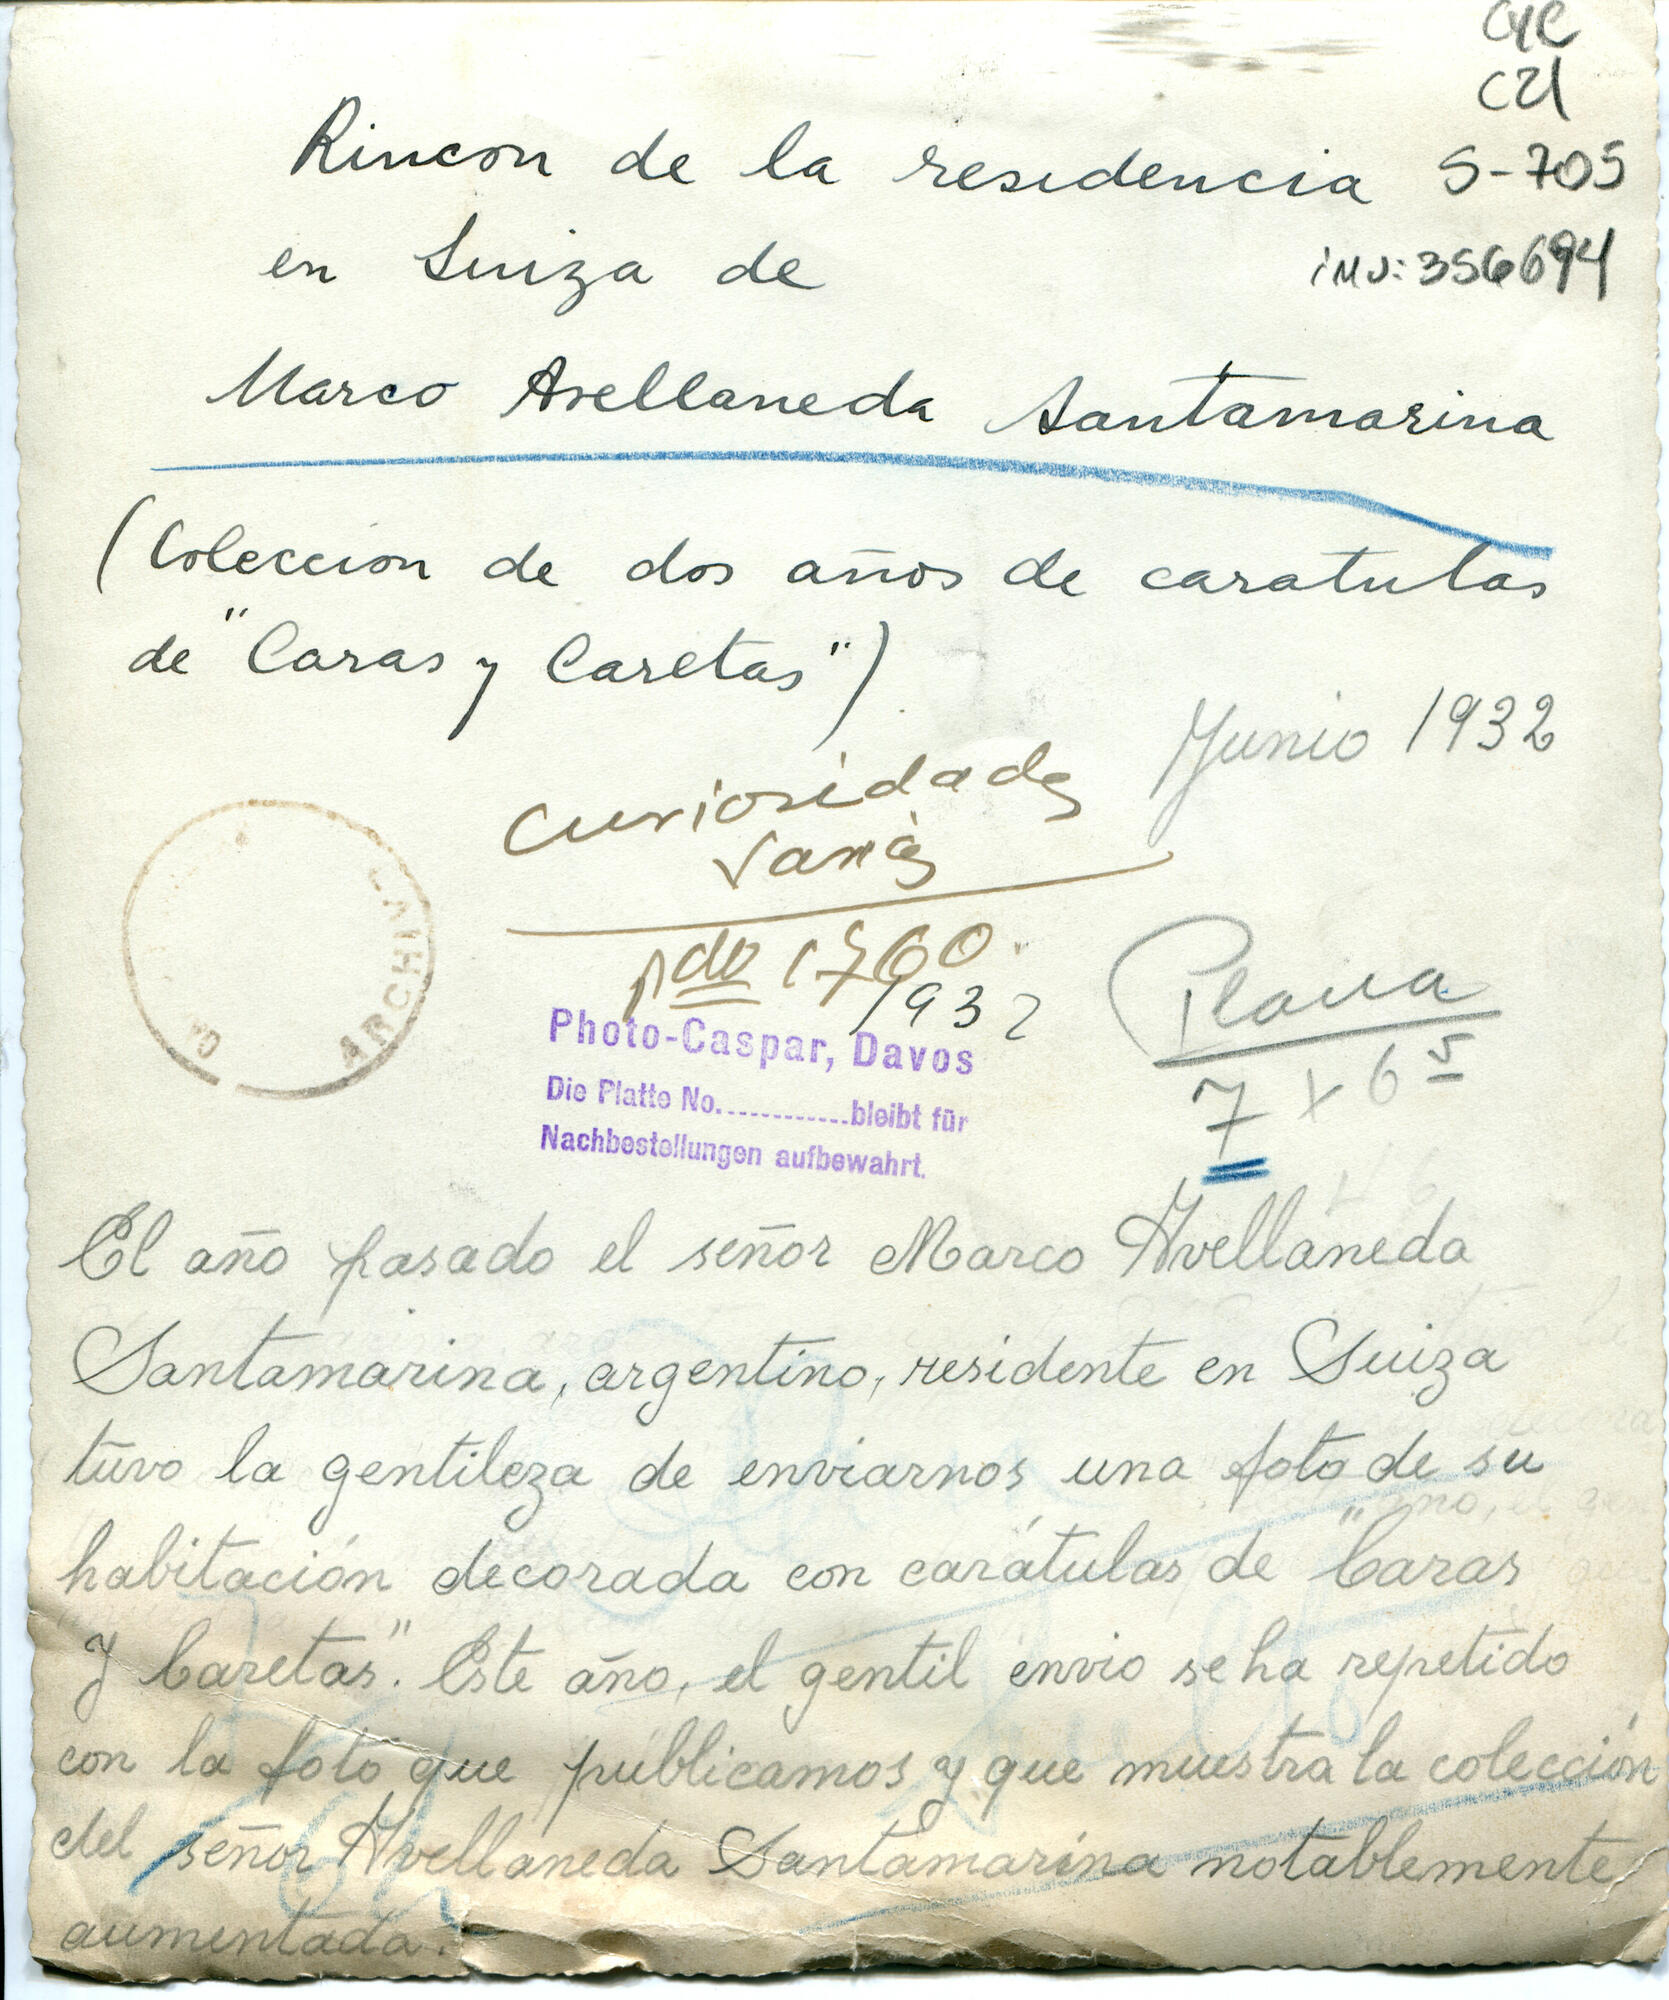 CyC
C21
Rincon de la residencia
S-705
en Suiza de
inv: 356694
Marco Avellaneda Santamarina
(Coleccion de dos años de caratulas
de "Caras y Caretas")
Junio 1932
Curiosidades
Varias
1760
1932
ARCHI
Plana
7 x 6 5
Photo-Caspar, Davos
Die Platte No.............bleibt für
Nachbestellungen aufbewahrt.
El año pasado el señor Marco Avellaneda
Santamarina, argentino, residente en Suiza
tuvo la gentileza de enviarnos una foto de su
habitación decorada con carátulas de "Caras
y Caretas". Este año, el gentil envio se ha repetido
con la foto que publicamos y que muestra la colección
del señor Avellaneda Santamarina notablemente
aumentada.